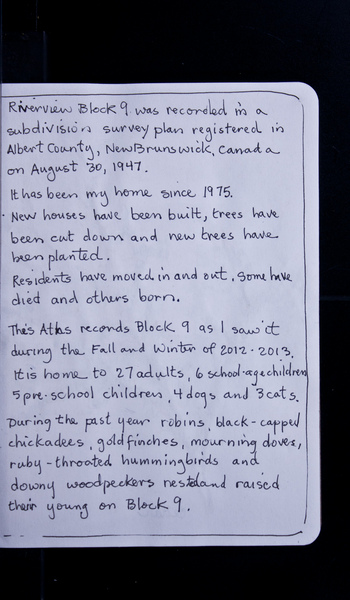 Riverview Block 9 was recorded in a
subdivision survey plan registered in
Albert County, New Brunswick, Canada
on August 30, 1947.
It has been my home since 1975.
New houses have been built, trees have
been cut down and new trees have
been planted.
Residents have moved in and out. Some have
died and others born.
This Atlas records Block 9 as I saw it
during the Fall and Winter of 2012-2013.
It is home to 27 adults, 6 school-age children
5 pre-school children, 4 dogs and 3 cats.
During the past year robins, black-capped
chickadees, goldfinches, mourning doves,
ruby-throated hummingbirds and
downy woodpeckers nested and raised
their young on Block 9.